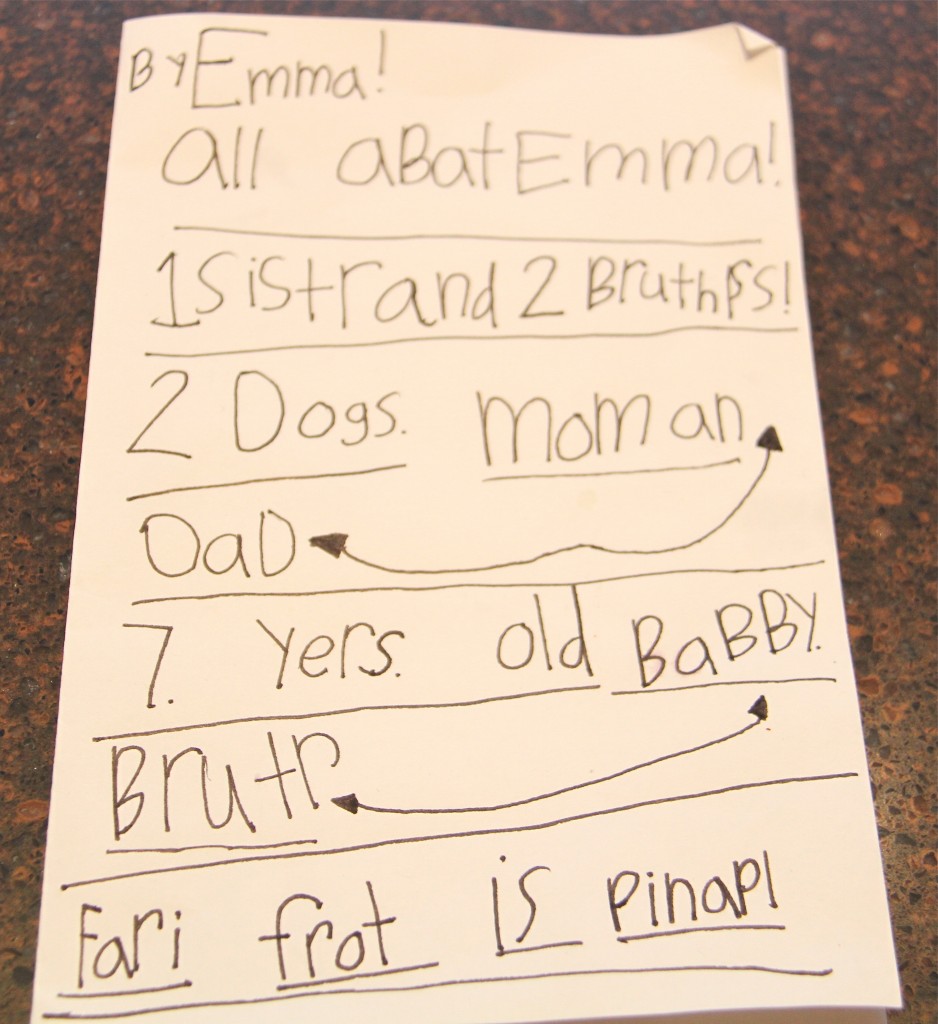 By Emma!
all aBat Emma!
1 Sistr and 2 Bruthrs!
2 Dogs. mom an
DaD
7. Yers. old BaBBY.
Brutr
Fari frot is pinapl